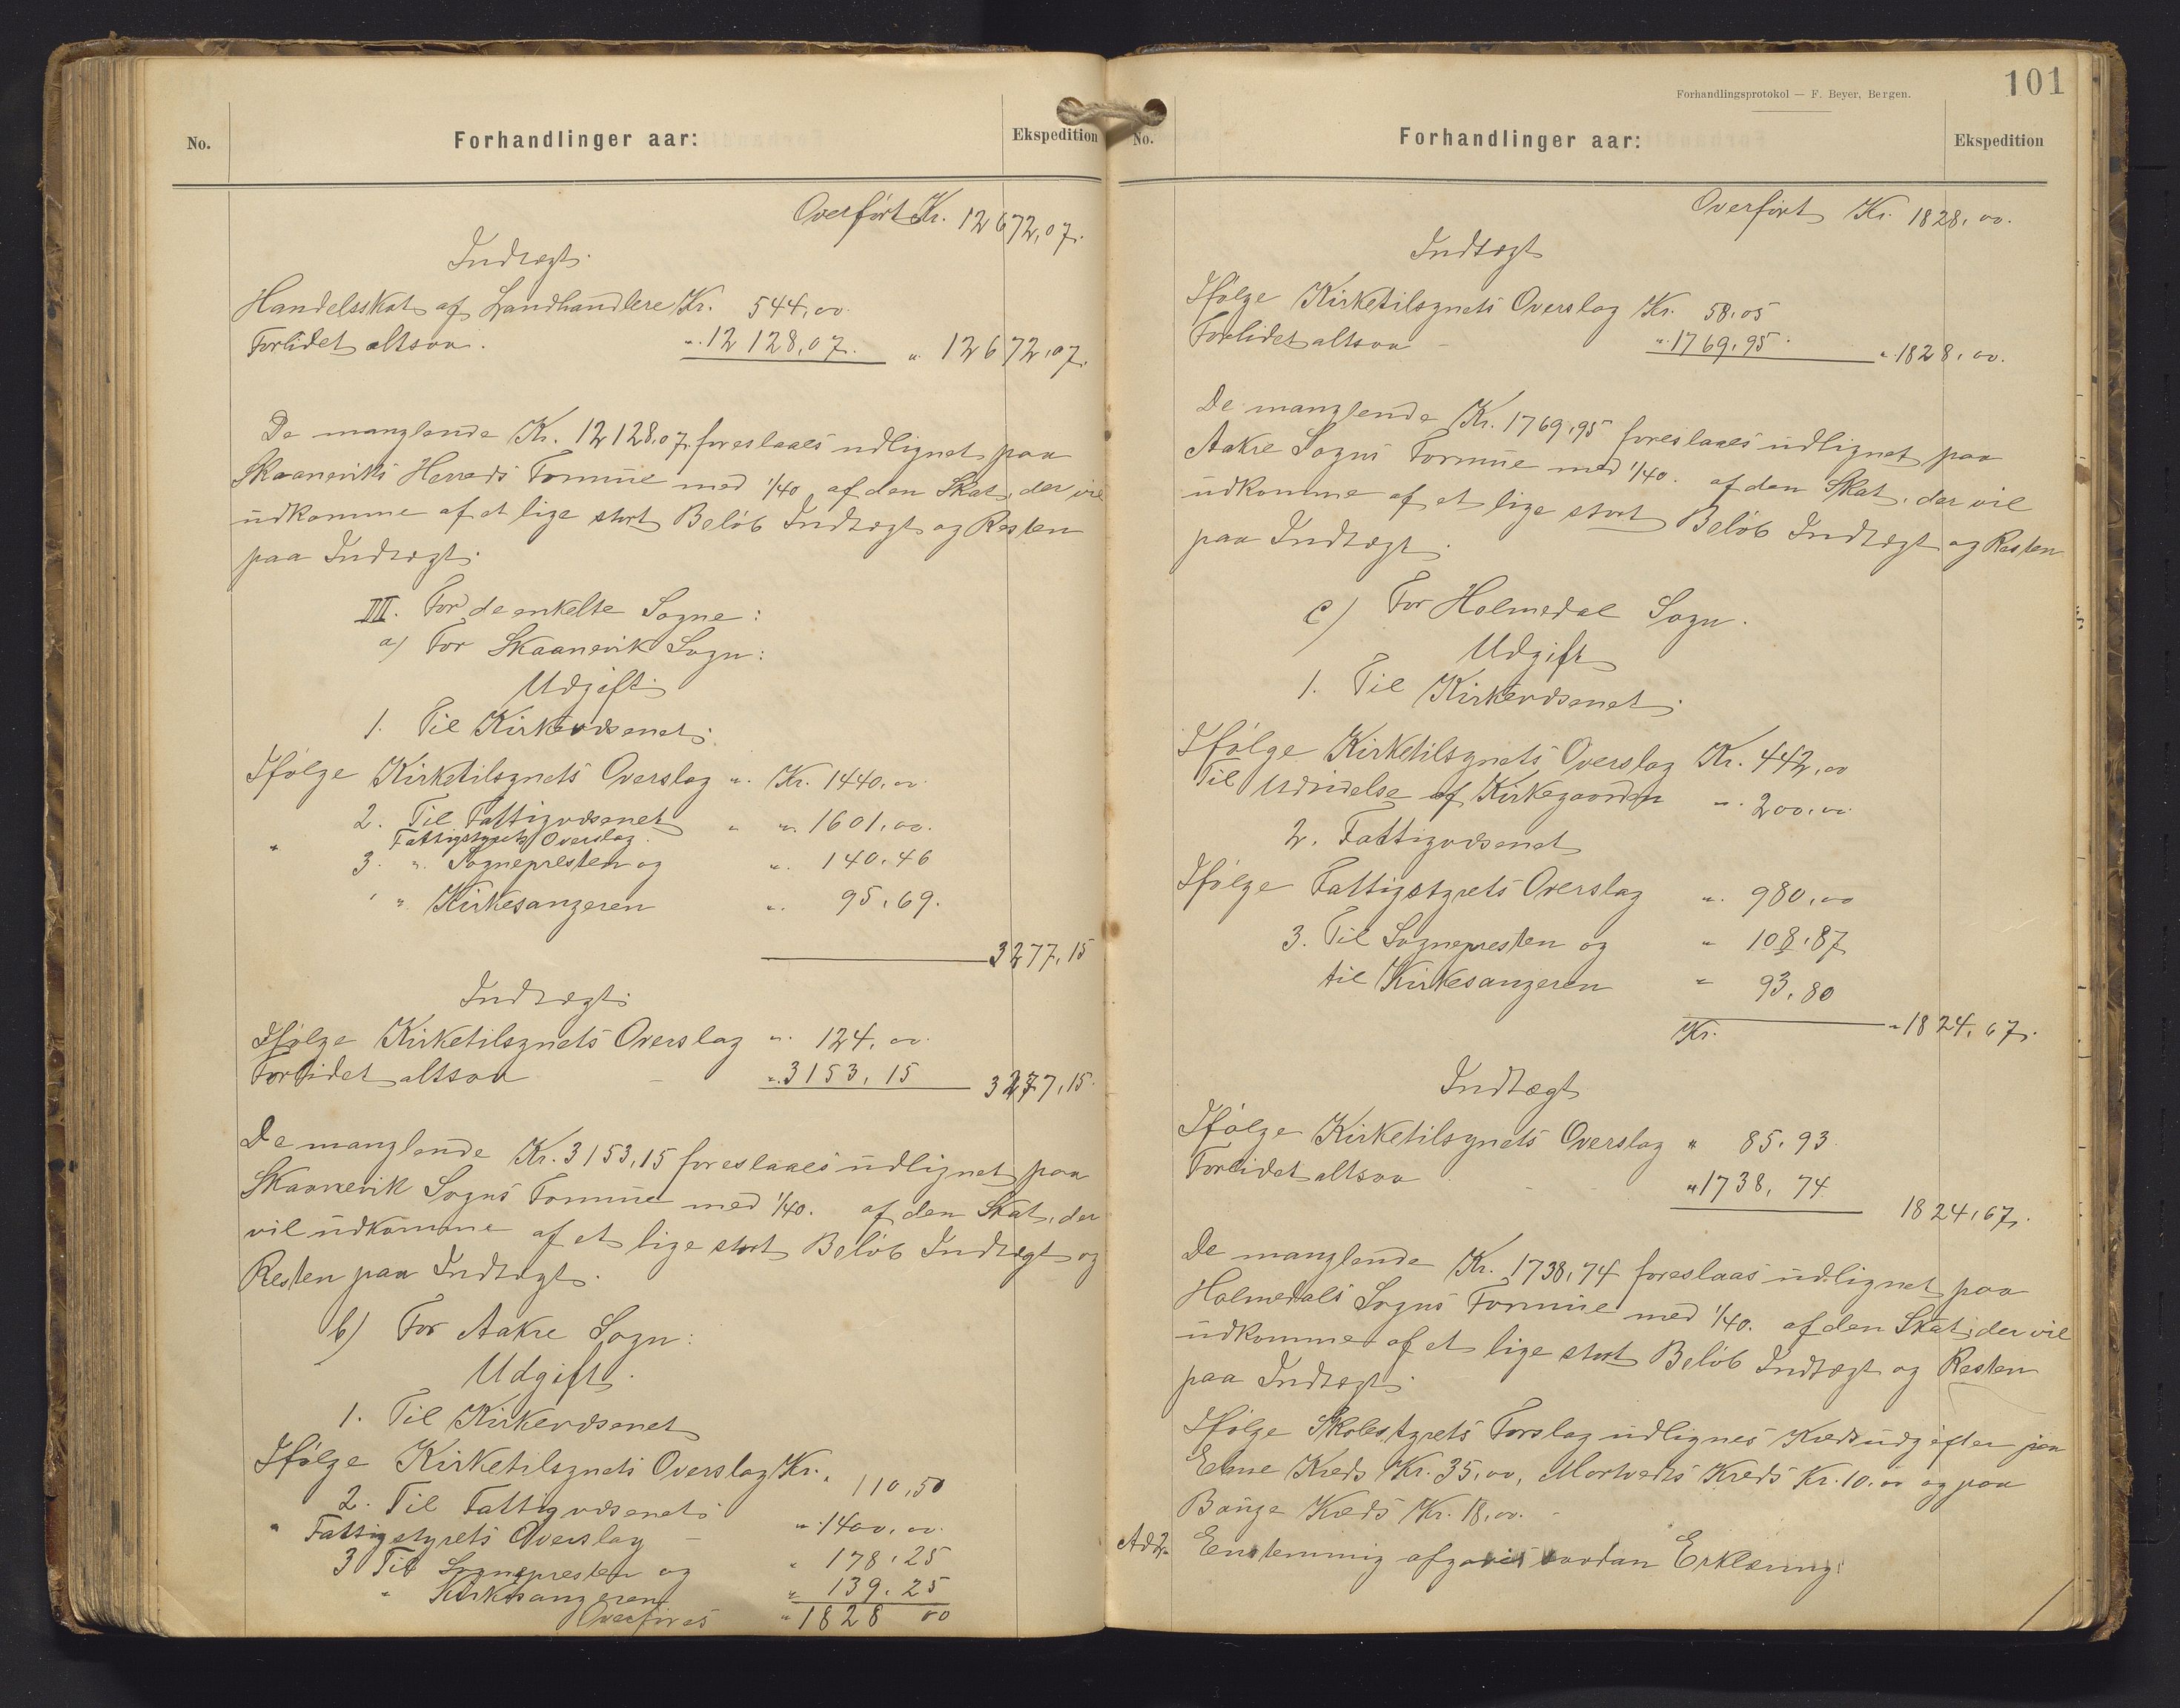 No.
Forhandlinger aar:
Ekspedition
Overført Kr. 12672,07.
Indtægt.
Handelsskat af Landhandlere Kr. 544,00
Forlidet altsaa. " 12128,07. " 12672,07.
De manglende Kr. 12128,07 foreslaaes udlignet paa
Skaaneviks Herreds Formue med 1/40 af den Skat, der vil
udkomme af et lige stort Beløb Indtægt og Resten
paa Indtægt.
III. For de enkelte Sogne:
a) For Skaanevik Sogn:
Udgift
1. Til Kirkevæsenet.
Ifølge Kirketilsynets Overslag " Kr. 1440,00
2. Til Fattigvæsenet " " 1601,00.
" Fattigstyrets Overslag.
3. " Sognepresten og " 140,46
" " Kirkesangeren " 95,69.
3277,15
Indtægt
Ifølge Kirketilsynets Overslag " 124,00
Forlidet altsaa - " 3153,15 3277,15.
De manglende Kr. 3153,15 foreslaaes udlignet paa
Skaanevik Sogns Formue med 1/40. af den Skat, der
vil udkomme af et lige stort Beløb Indtægt og
Resten paa Indtægt.
b) For Aakre Sogn:
Udgift.
1. Til Kirkevæsenet
Ifølge Kirketilsynets Overslag Kr. 110,50
2. Til Fattigvæsenet
" Fattigstyrets Overslag - " 1400,00.
3 Til Sognepresten og " 178,25
" Kirkesangeren " 139,25
Overføres " 1828 00
Forhandlingsprotokol — F. Beyer, Bergen.
101
No.
Forhandlinger aar:
Ekspedition
Overført Kr. 1828,00.
Indtægt
Ifølge Kirketilsynets Overslag Kr. 58,05
Forlidet altsaa - " 1769,95. " 1828,00.
De manglende Kr. 1769,95 foreslaaes udlignet paa
Aakre Sogns Formue med 1/40. af den Skat, der vil
udkomme af et lige stort Beløb Indtægt og Resten
paa Indtægt.
c) For Holmedal Sogn.
Udgift
1. Til Kirkevæsenet.
Ifølge Kirketilsynets Overslag Kr. 442,00
Til Udvidelse af Kirkegaarden " 200,00
2. Fattigvæsenet
Ifølge Fattigstyrets Overslag " 980,00
3. Til Sognepresten og " 108,87
til Kirkesangeren " 93,80
Kr. " 1824,67.
Indtægt
Ifølge Kirketilsynets Overslag " 85,93.
Forlidet altsaa " 1738,74 1824,67.
De manglende Kr. 1738,74 foreslaas udlignet paa
Holmedals Sogns Formue med 1/40. af den Skat, der vil
udkomme af et lige stort Beløb Indtægt og Resten
paa Indtægt.
Ifølge Skolestyrets Forslag udlignes Kredsudgifter paa
Ebne Kreds Kr. 35,00, Mortveits Kreds Kr. 10,00 og paa
Bauge Kreds Kr. 18,00.
Enstemmig afgaves saadan Erklæring: